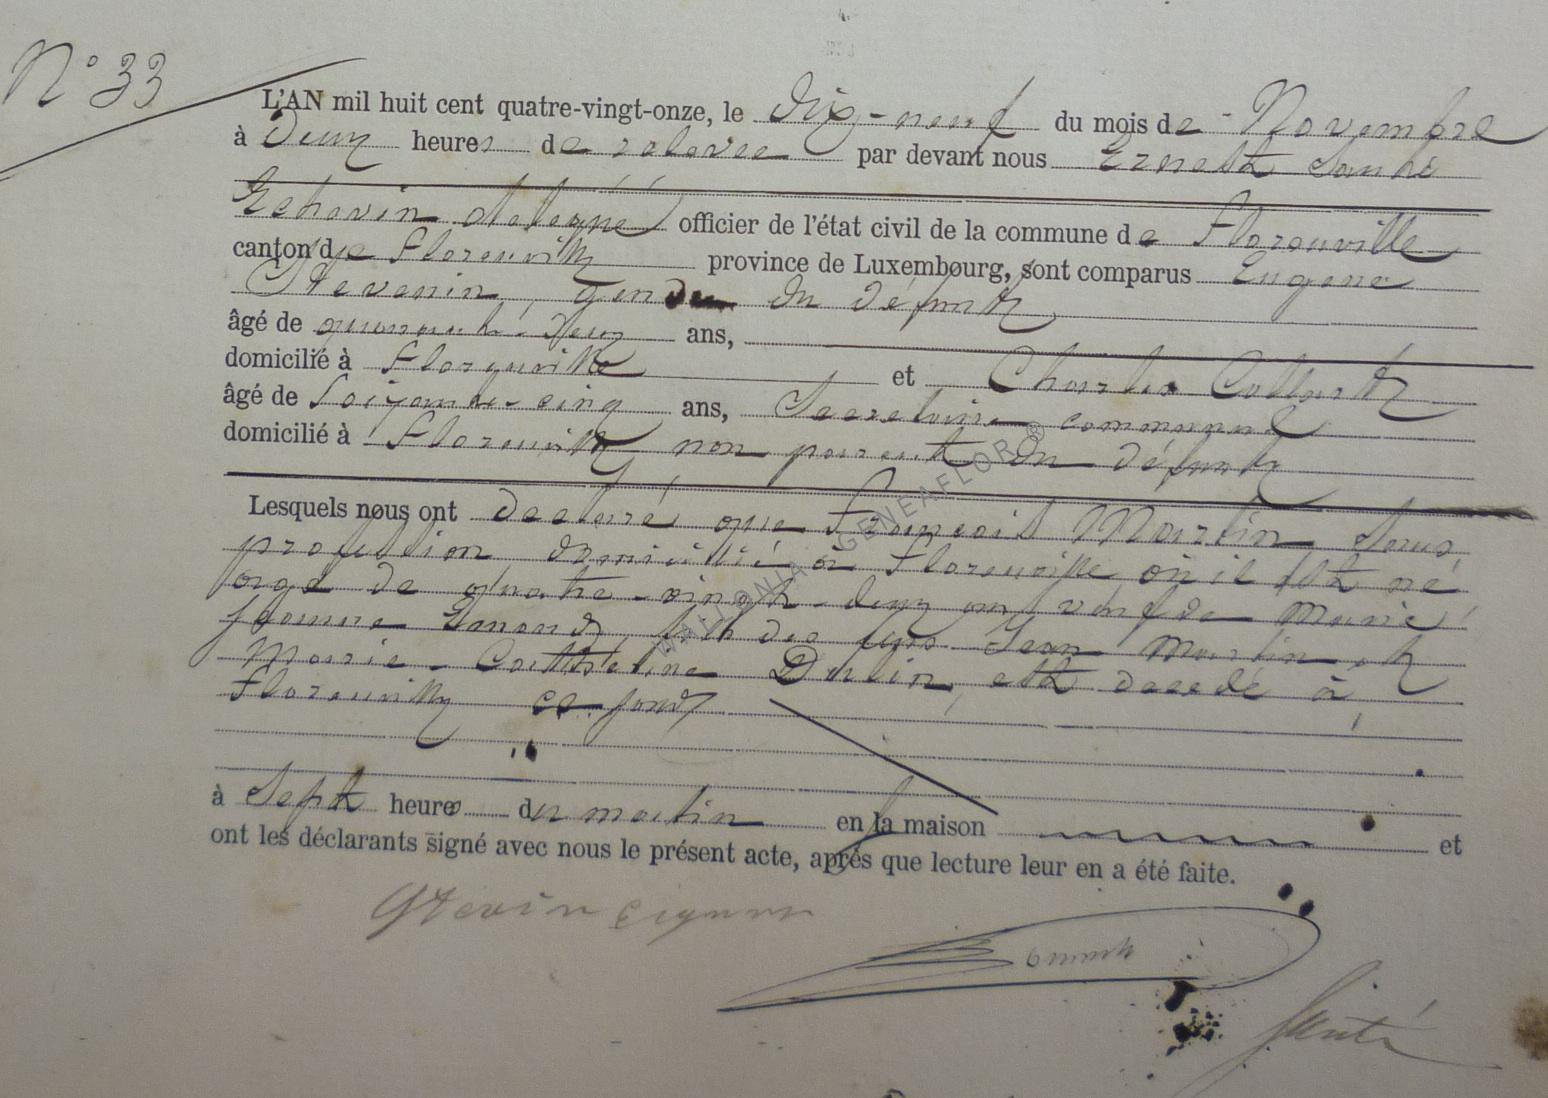 N° 33
L'AN mil huit cent quatre-vingt-onze, le dix-neuf du mois de Novembre
à deux heures de relevée par devant nous Ernest Santé
Echevin délégué officier de l'état civil de la commune de Florenville
canton de Florenville province de Luxembourg, sont comparus Eugene
Stevenin, gendre du défunt
âgé de quarante-deux ans,
domicilié à Florenville et Charles Collart
âgé de soixante-cinq ans, Secretaire communal
domicilié à Florenville non parent du défunt
Lesquels nous ont declaré que François Martin sans
profession domicilié à Florenville où il est né
agé de quatre-vingt-deux ans veuf de Marie
Jeanne fils des Jean Martin et
Marie-Catherine est decedé à
Florenville ce jour
à Sept heures du matin en la maison et
ont les déclarants signé avec nous le présent acte, après que lecture leur en a été faite.
Santé
WALLONIA GENEAFLOR®